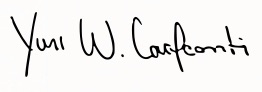 Yuri W. Carfconti